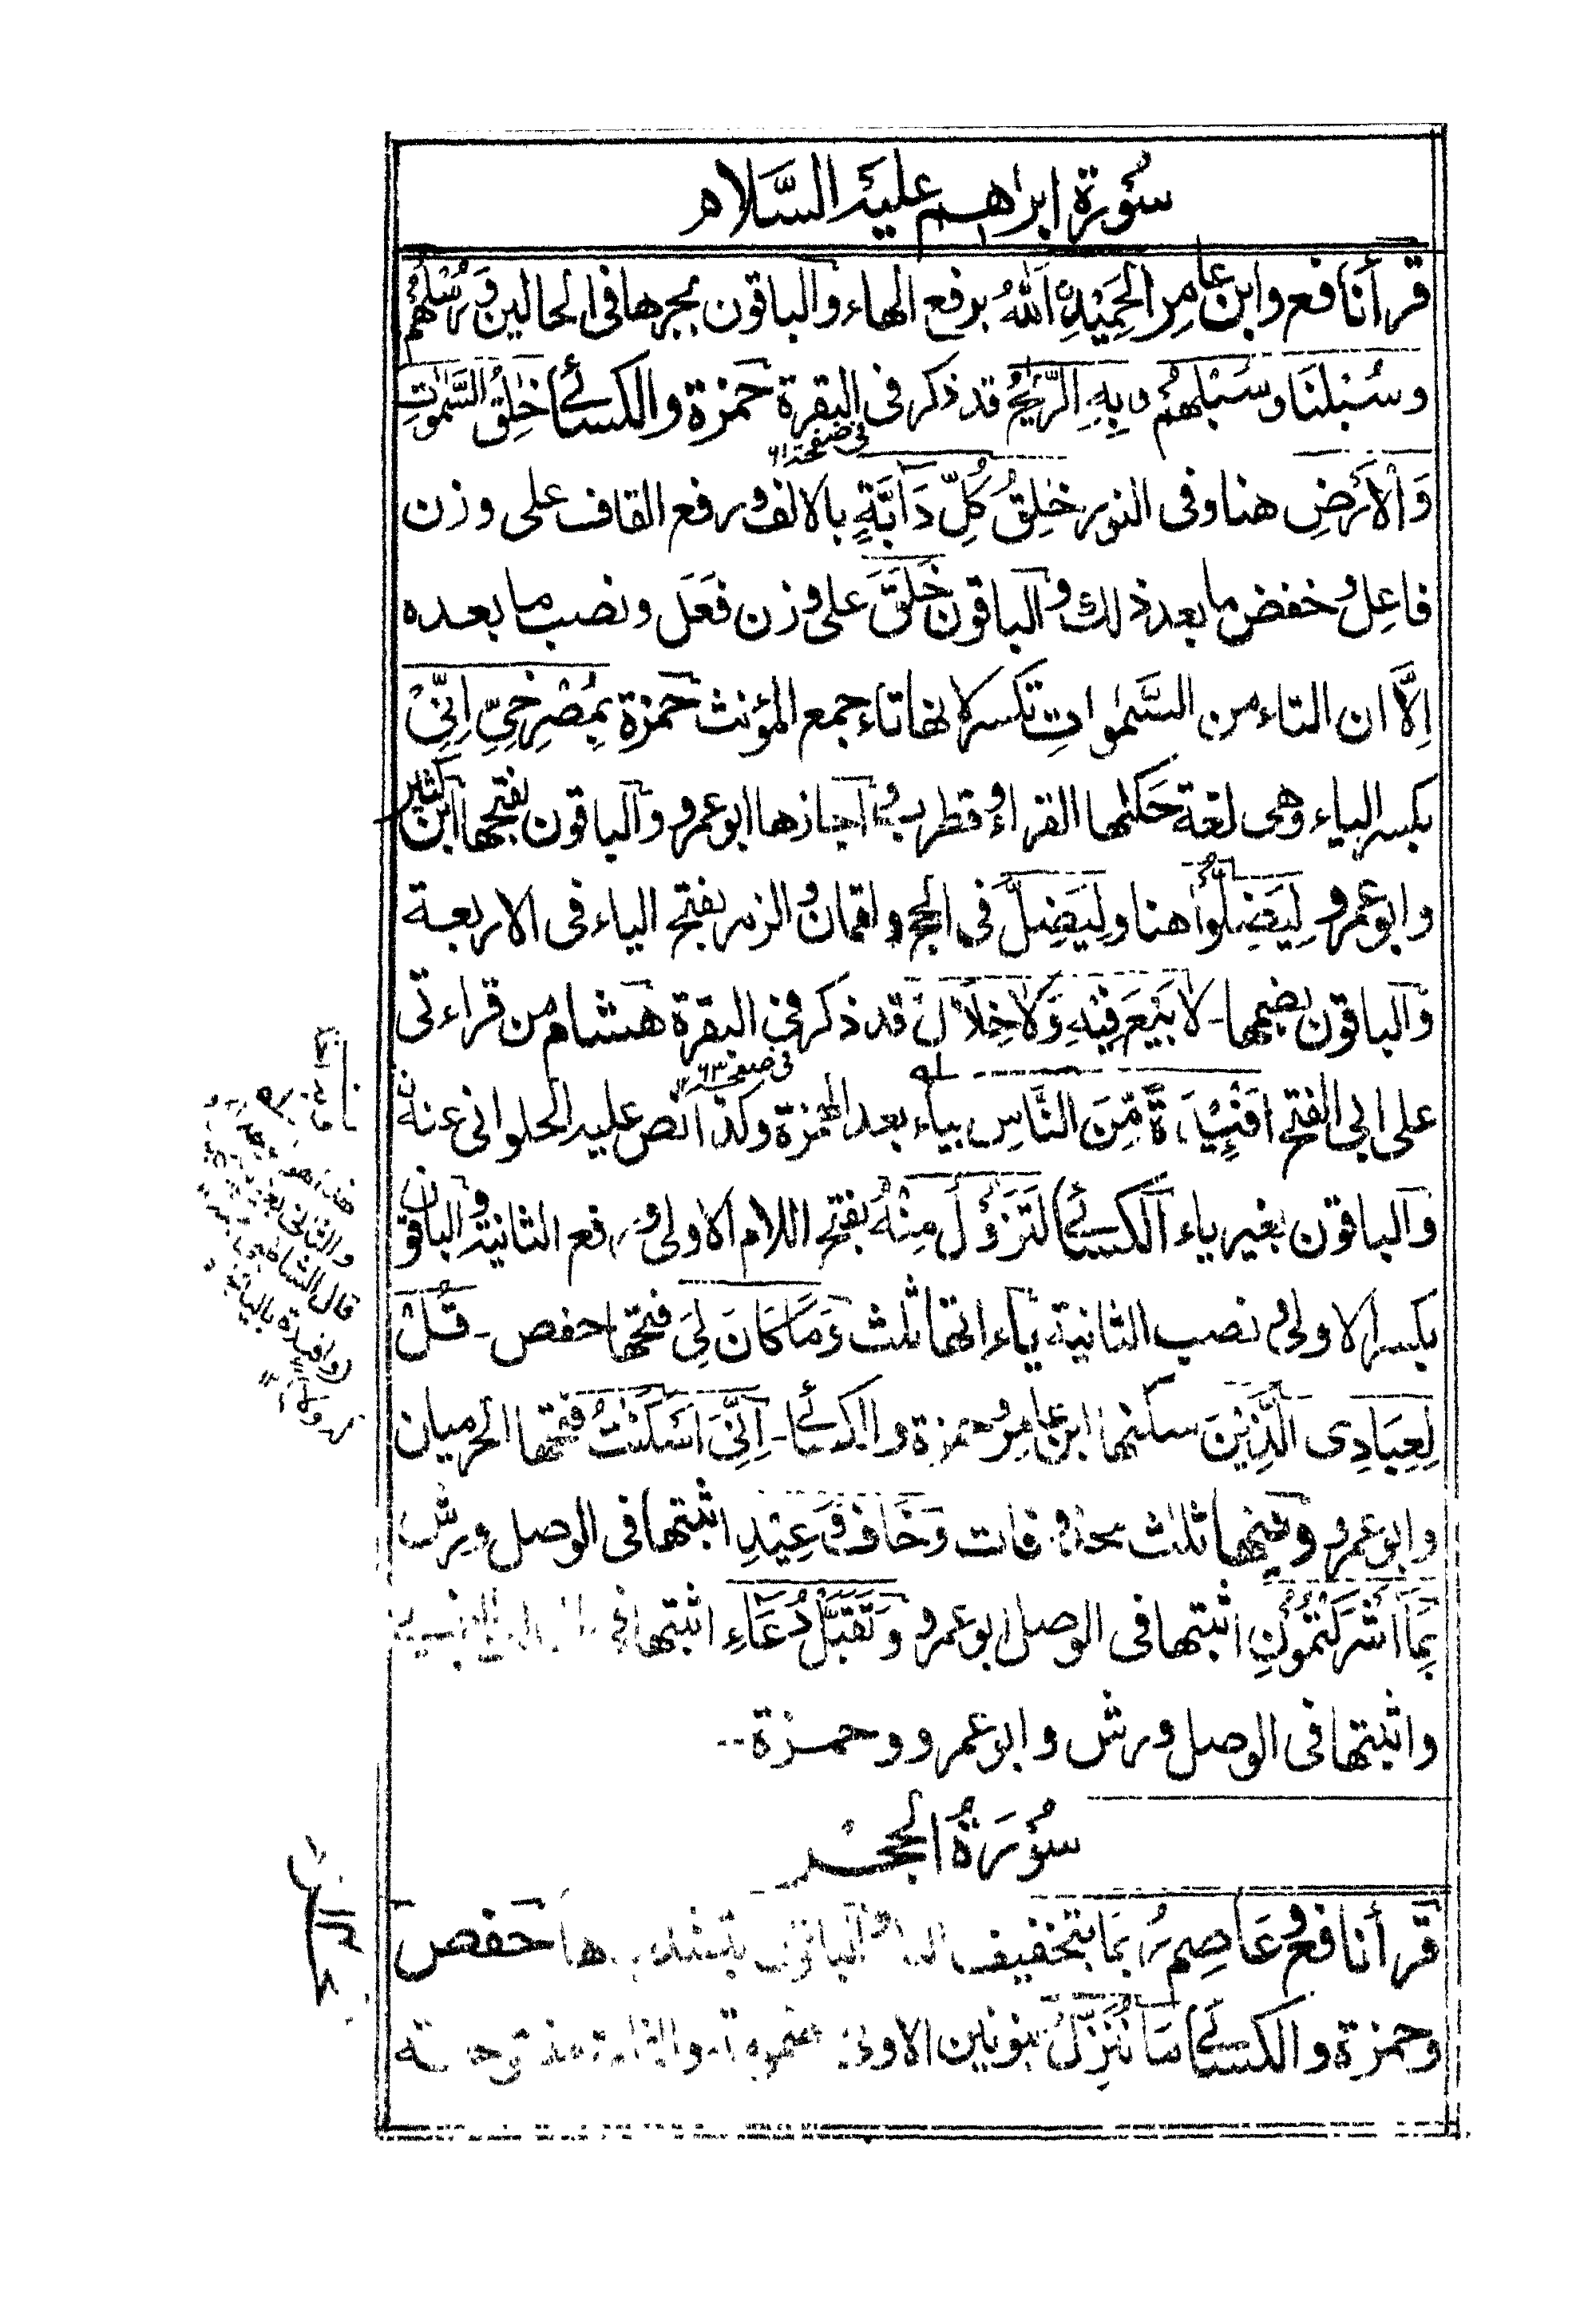 سُوْرة ابراهيم عليه السَّلام
قرأ نافع وابن عامر الحَمِيْدِ اَللّٰهُ برفع الهاء والباقون بجرها فى الحالين وَرُسُلُهُمْ
وسُبُلَنَا وسُبُلَهُمْ وبِهِ الرِّيٰحُ قد ذكر فى البقرة حمزة والكسائى خٰلِقُ السَّمٰوٰتِ
فى صفحة ٦١
وَالْاَرْضِ هنا وفى النور خٰلِقُ كُلِّ دَآبَّةٍ بالالف ورفع القاف على وزن
فاعِل وخفض ما بعد ذلك والباقون خَلَقَ على وزن فَعَلَ ونصب ما بعده
اِلَّا ان التاء من السَّمٰوات تكسر لانها تاء جمع المؤنث حمزة بِمُصْرِخِيِّ اِنِّىْ
بكسر الياء وهى لغة حَكٰها الفراء وقطرب واجازها ابوعمرو والباقون بفتحها ابن كثير
وابوعمرو لِيَضِلُّوْا هنا ولِيَضِلَّ فى الحج ولقمان والزمر بفتح الياء فى الاربعة
والباقون بضمها۔ لَا بَيْعَ فِيْهِ وَلَا خِلَالَ قد ذكر فى البقرة هشام من قراءتى
فى صفحة ٦٣
على ابى الفتح اَفْئِيْدَةً مِّنَ النَّاسِ بياء بعد الهمزة وكذا نص عليه الحلوانى عنه
والباقون بغير ياء الكسائى لَتَزُوْلُ مِنْهُ بفتح اللام الاولى ورفع الثانية والباقون
بكسر الاولى ونصب الثانية ياءاتها ثلث وَمَا كَانَ لِىَ فتحها حفص۔ قُلْ
لِعِبَادِى الَّذِيْنَ سكنها ابن عامر وحمزة والكسائى۔ اِنِّىَ اَسْكَنْتُ فتحها الحرميان
وابوعمرو وفيها ثلث محذوفات وَخَافَ وَعِيْدِ اثبتها فى الوصل ورش
بِمَا اَشْرَكْتُمُوْنِ اثبتها فى الوصل ابوعمرو وَتَقَبَّلْ دُعَاءِ اثبتها فى
واثبتها فى الوصل ورش وابوعمرو وحمزة۔۔
سُوْرَةُ الحِجْر
قرأ نافع وعَاصِم رُبَمَا بتخفيف الباء والباقون بتشديدها حفص
وحمزة والكسائى مَا نُنَزِّلُ بنونين الاولى مضمومة والثانية مفتوحة
والثانى بغير
قال الشاطبى
وافئدة باليا